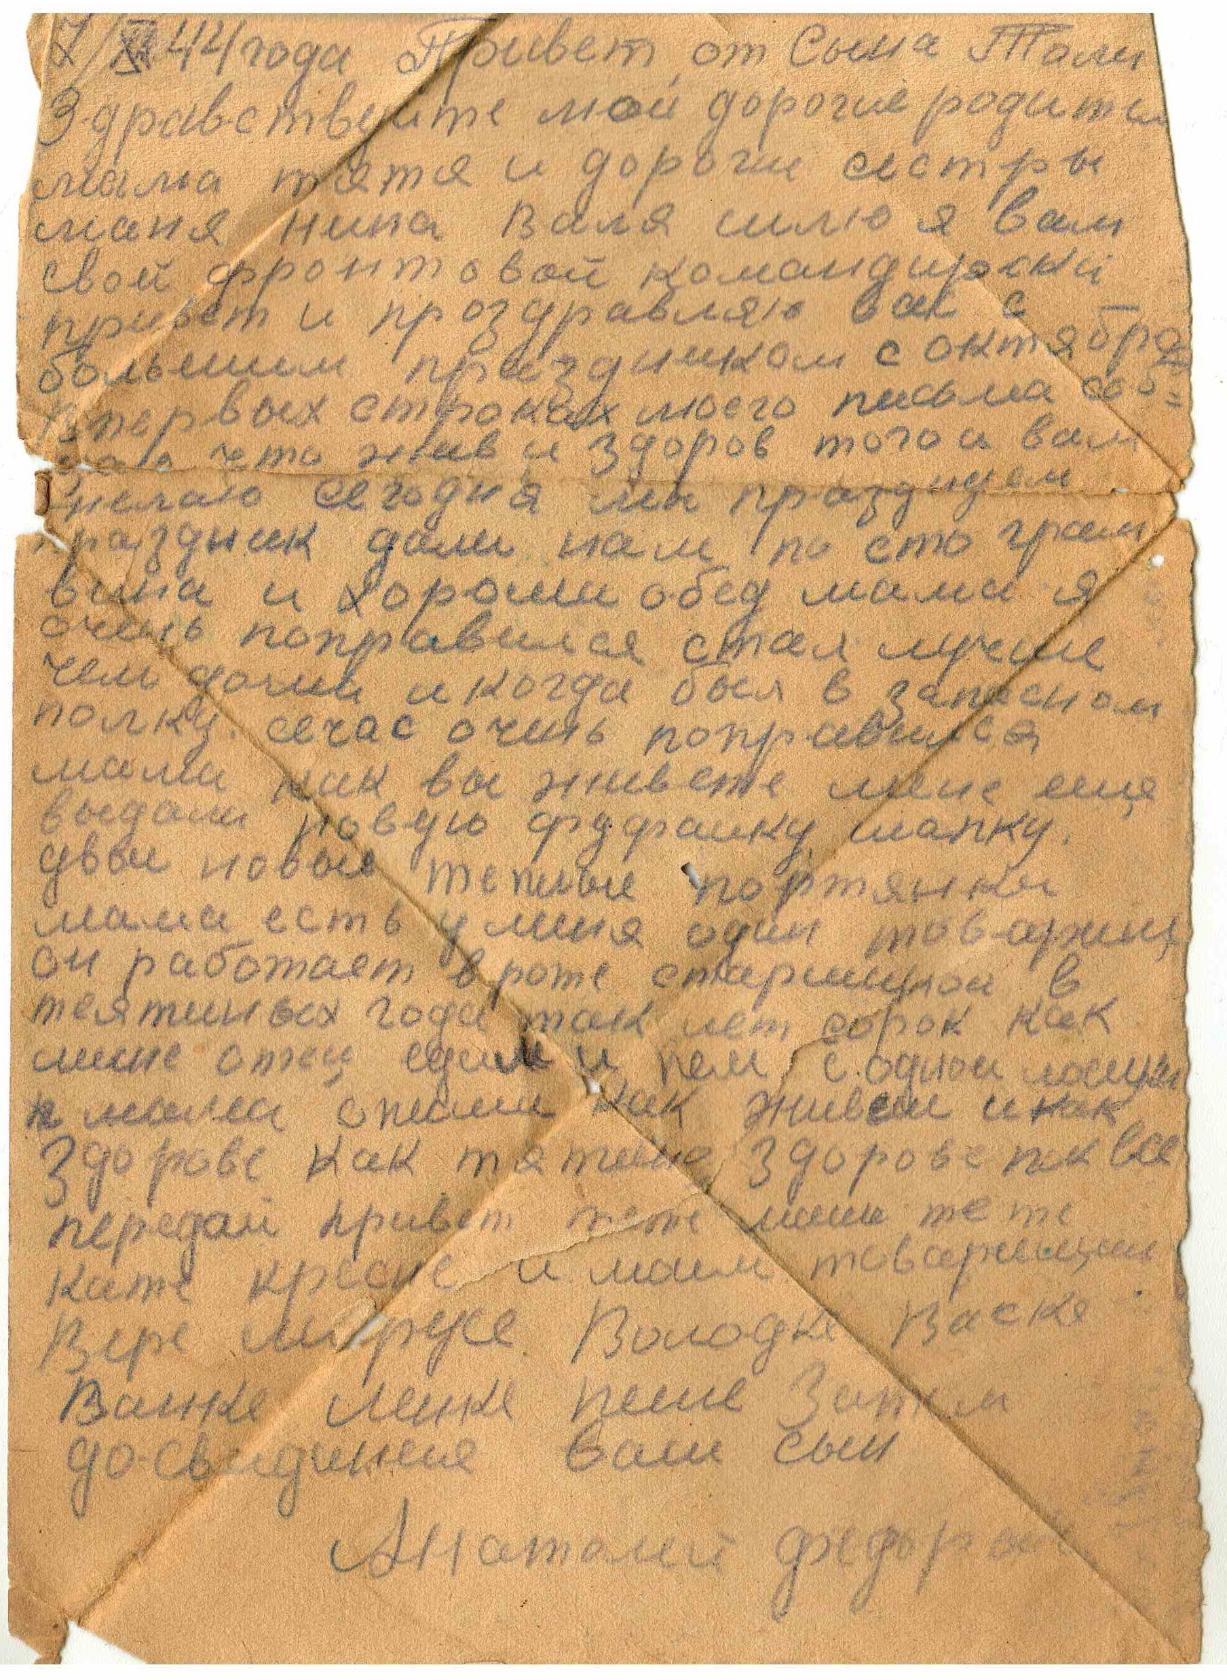 7/XI 44 года Привет от Сына Толи
Здравствуйте мои дорогие родители
мама тятя и дороги сестры
маня нина Валя шлю я вам
свой фронтовой командирски
привет и проздравляю вас с
большим праздником с октября
Впервых строках моего письма сооб=
что жив и здоров того и вам
желаю сегодня мы празднуем
праздник дали нам по сто грам
вина и хороши обед мама я
очень поправился стал лучше
чем дома и когда был в запасном
полку. сечас очень поправился
мама как вы живете мене еще
выдали новую фуфайку шапку.
двои новые теплые портянки
мама есть у меня один товарищ
он работает в роте старшиной в
тятиных года так лет сорок как
мине отец едим и пем с одной
мама опиши как живеш и как
Здорове как тятино здорове пок все
передай привет тете мане тете
кате кресне и моим товарищам
Вере мирусе Володке Васке
Ванке ленке пене Затем
до-свидиния ваш сын
Анатолий федоров